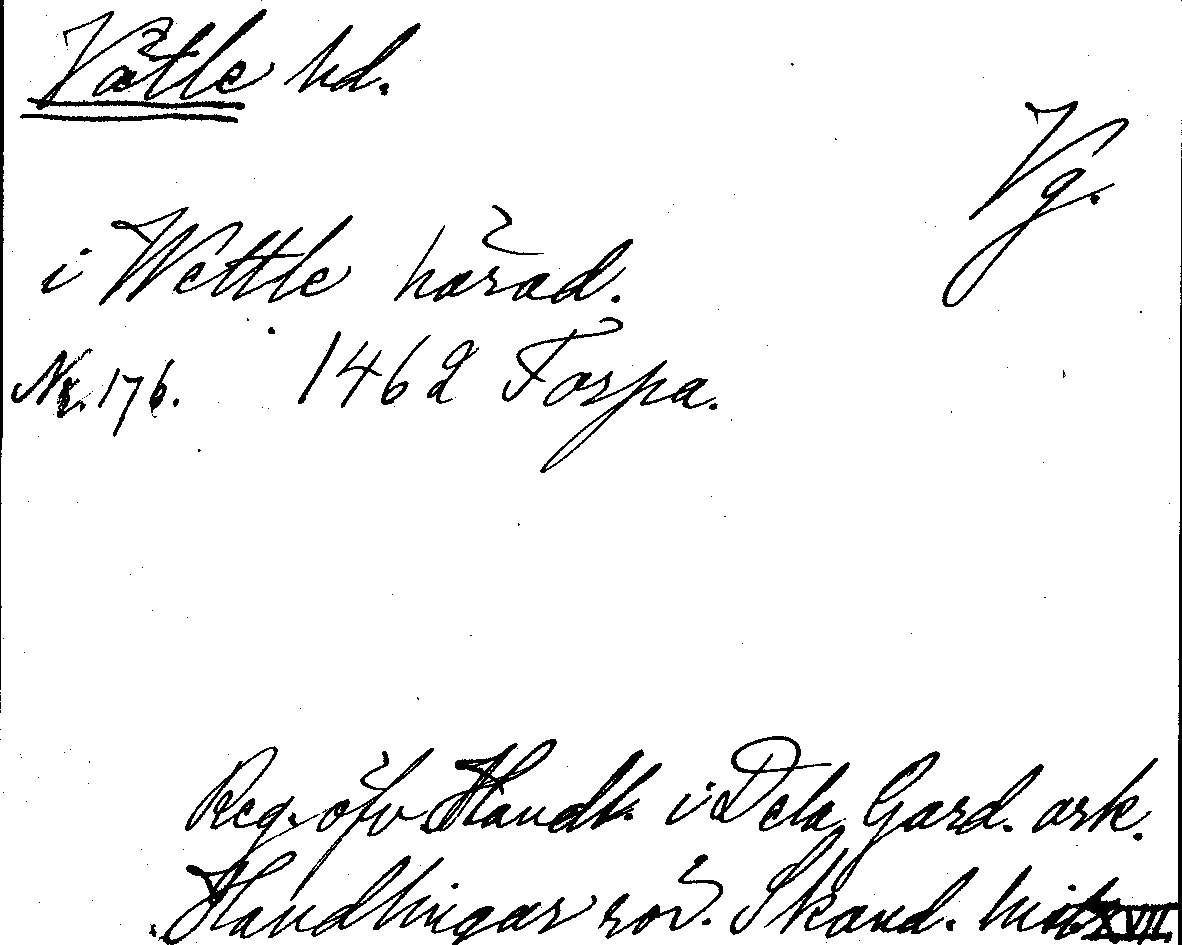 Vättle hd.
Vg.
i Wettle härad.
Nr. 176. 1462 Torpa.
Reg. öfv. Handl. i Dela Gard. ark.
Handlingar rör. Skand. hist. XVII.